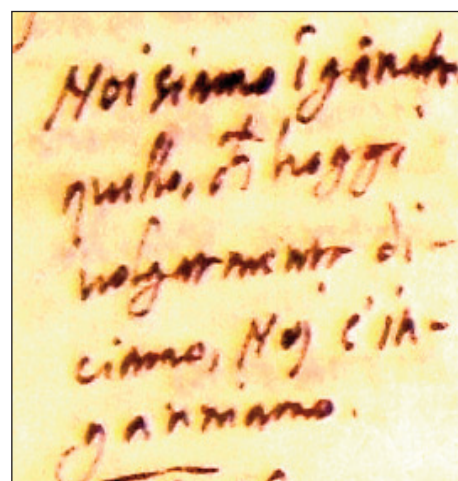 Noi siamo īgānati
quello, ch̄ hoggi
volgarmente di-
ciamo, Noj c'in-
ganniamo.